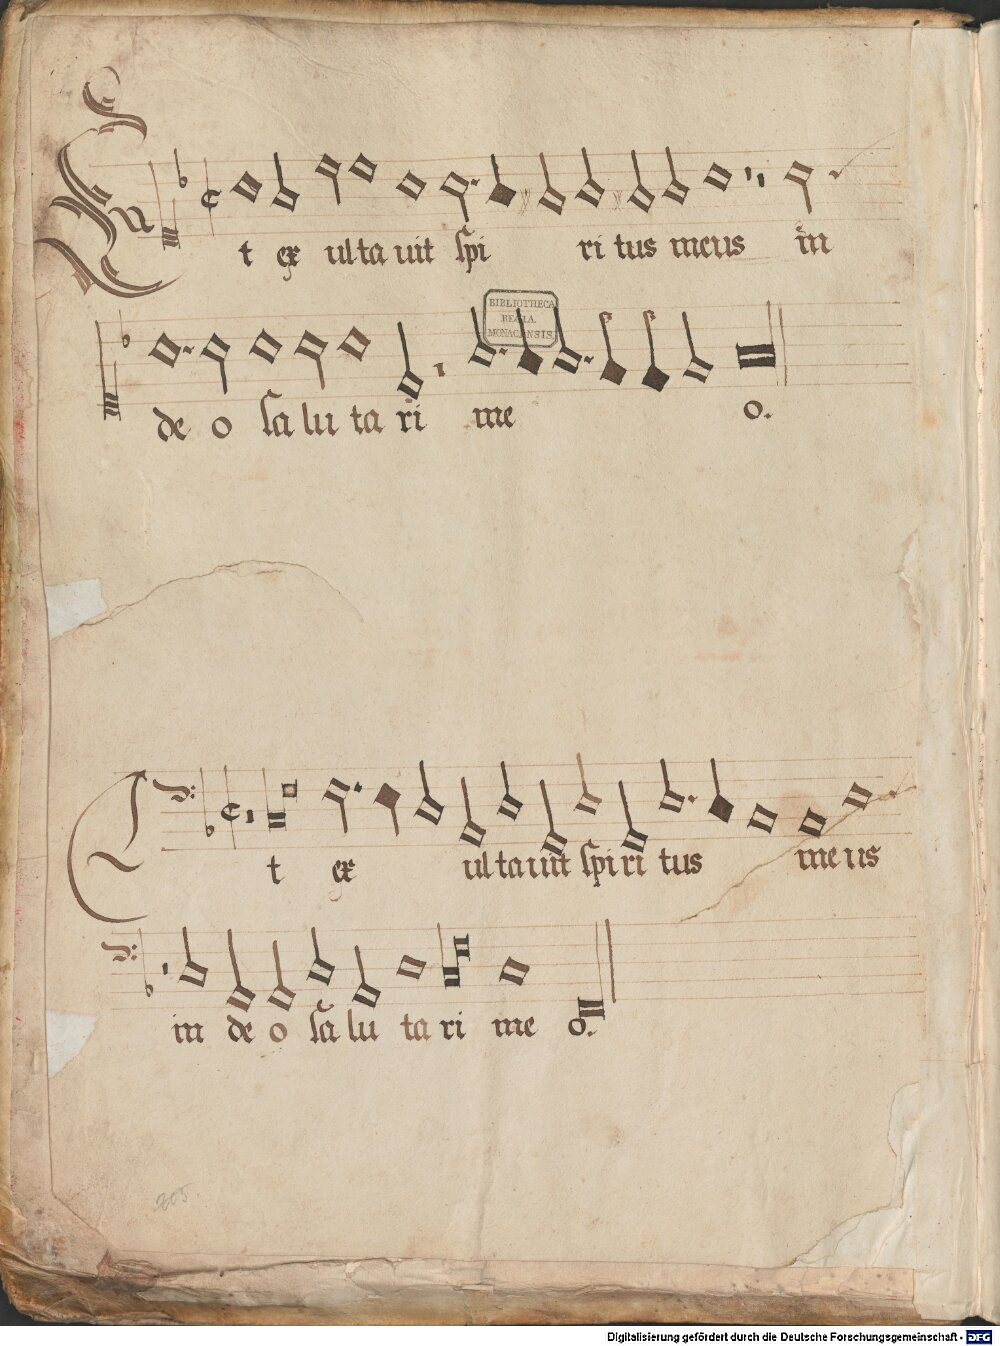 Et ex ul ta uit spi ri tus meus in
BIBLIOTHECA
REGIA.
MONACENSIS.
de o sa lu ta ri me o.
Et ex ul ta uit spi ri tus me us
in de o sa lu ta ri me o.
205.
Digitalisierung gefördert durch die Deutsche Forschungsgemeinschaft - DFG